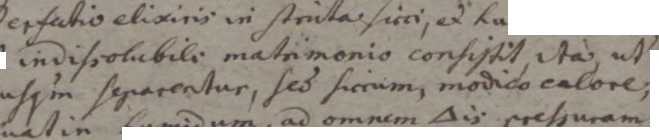 erfectio elixiris in stricta sicci, et hu
indissolubili matrimonio consistit, ita, ut
usqm separentur, sed siccum, modico calore,
uatin humidum, ad omnem △is pressuram